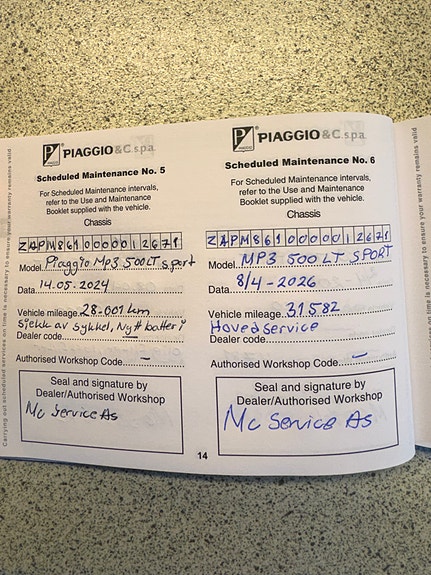 PIAGGIO & C. s.p.a.
Scheduled Maintenance No. 5
For Scheduled Maintenance intervals,
refer to the Use and Maintenance
Booklet supplied with the vehicle.
Chassis
ZAPM861000001 2671
Model Piaggio Mp3 500 LT sport
Data 14.05.2024
Vehicle mileage 28.001 km
Sjekk av sykkel, Nytt batteri
Dealer code
Authorised Workshop Code —
Seal and signature by
Dealer/Authorised Workshop
Mc Service As
PIAGGIO & C. s.p.a.
Scheduled Maintenance No. 6
For Scheduled Maintenance intervals,
refer to the Use and Maintenance
Booklet supplied with the vehicle.
Chassis
ZAPM861000001 2671
Model MP3 500 LT SPORT
Data 8/4-2026
Vehicle mileage 31582
Hovedservice
Dealer code
Authorised Workshop Code —
Seal and signature by
Dealer/Authorised Workshop
Mc Service As
14
Carrying out scheduled services on time is necessary to ensure your warranty remains valid